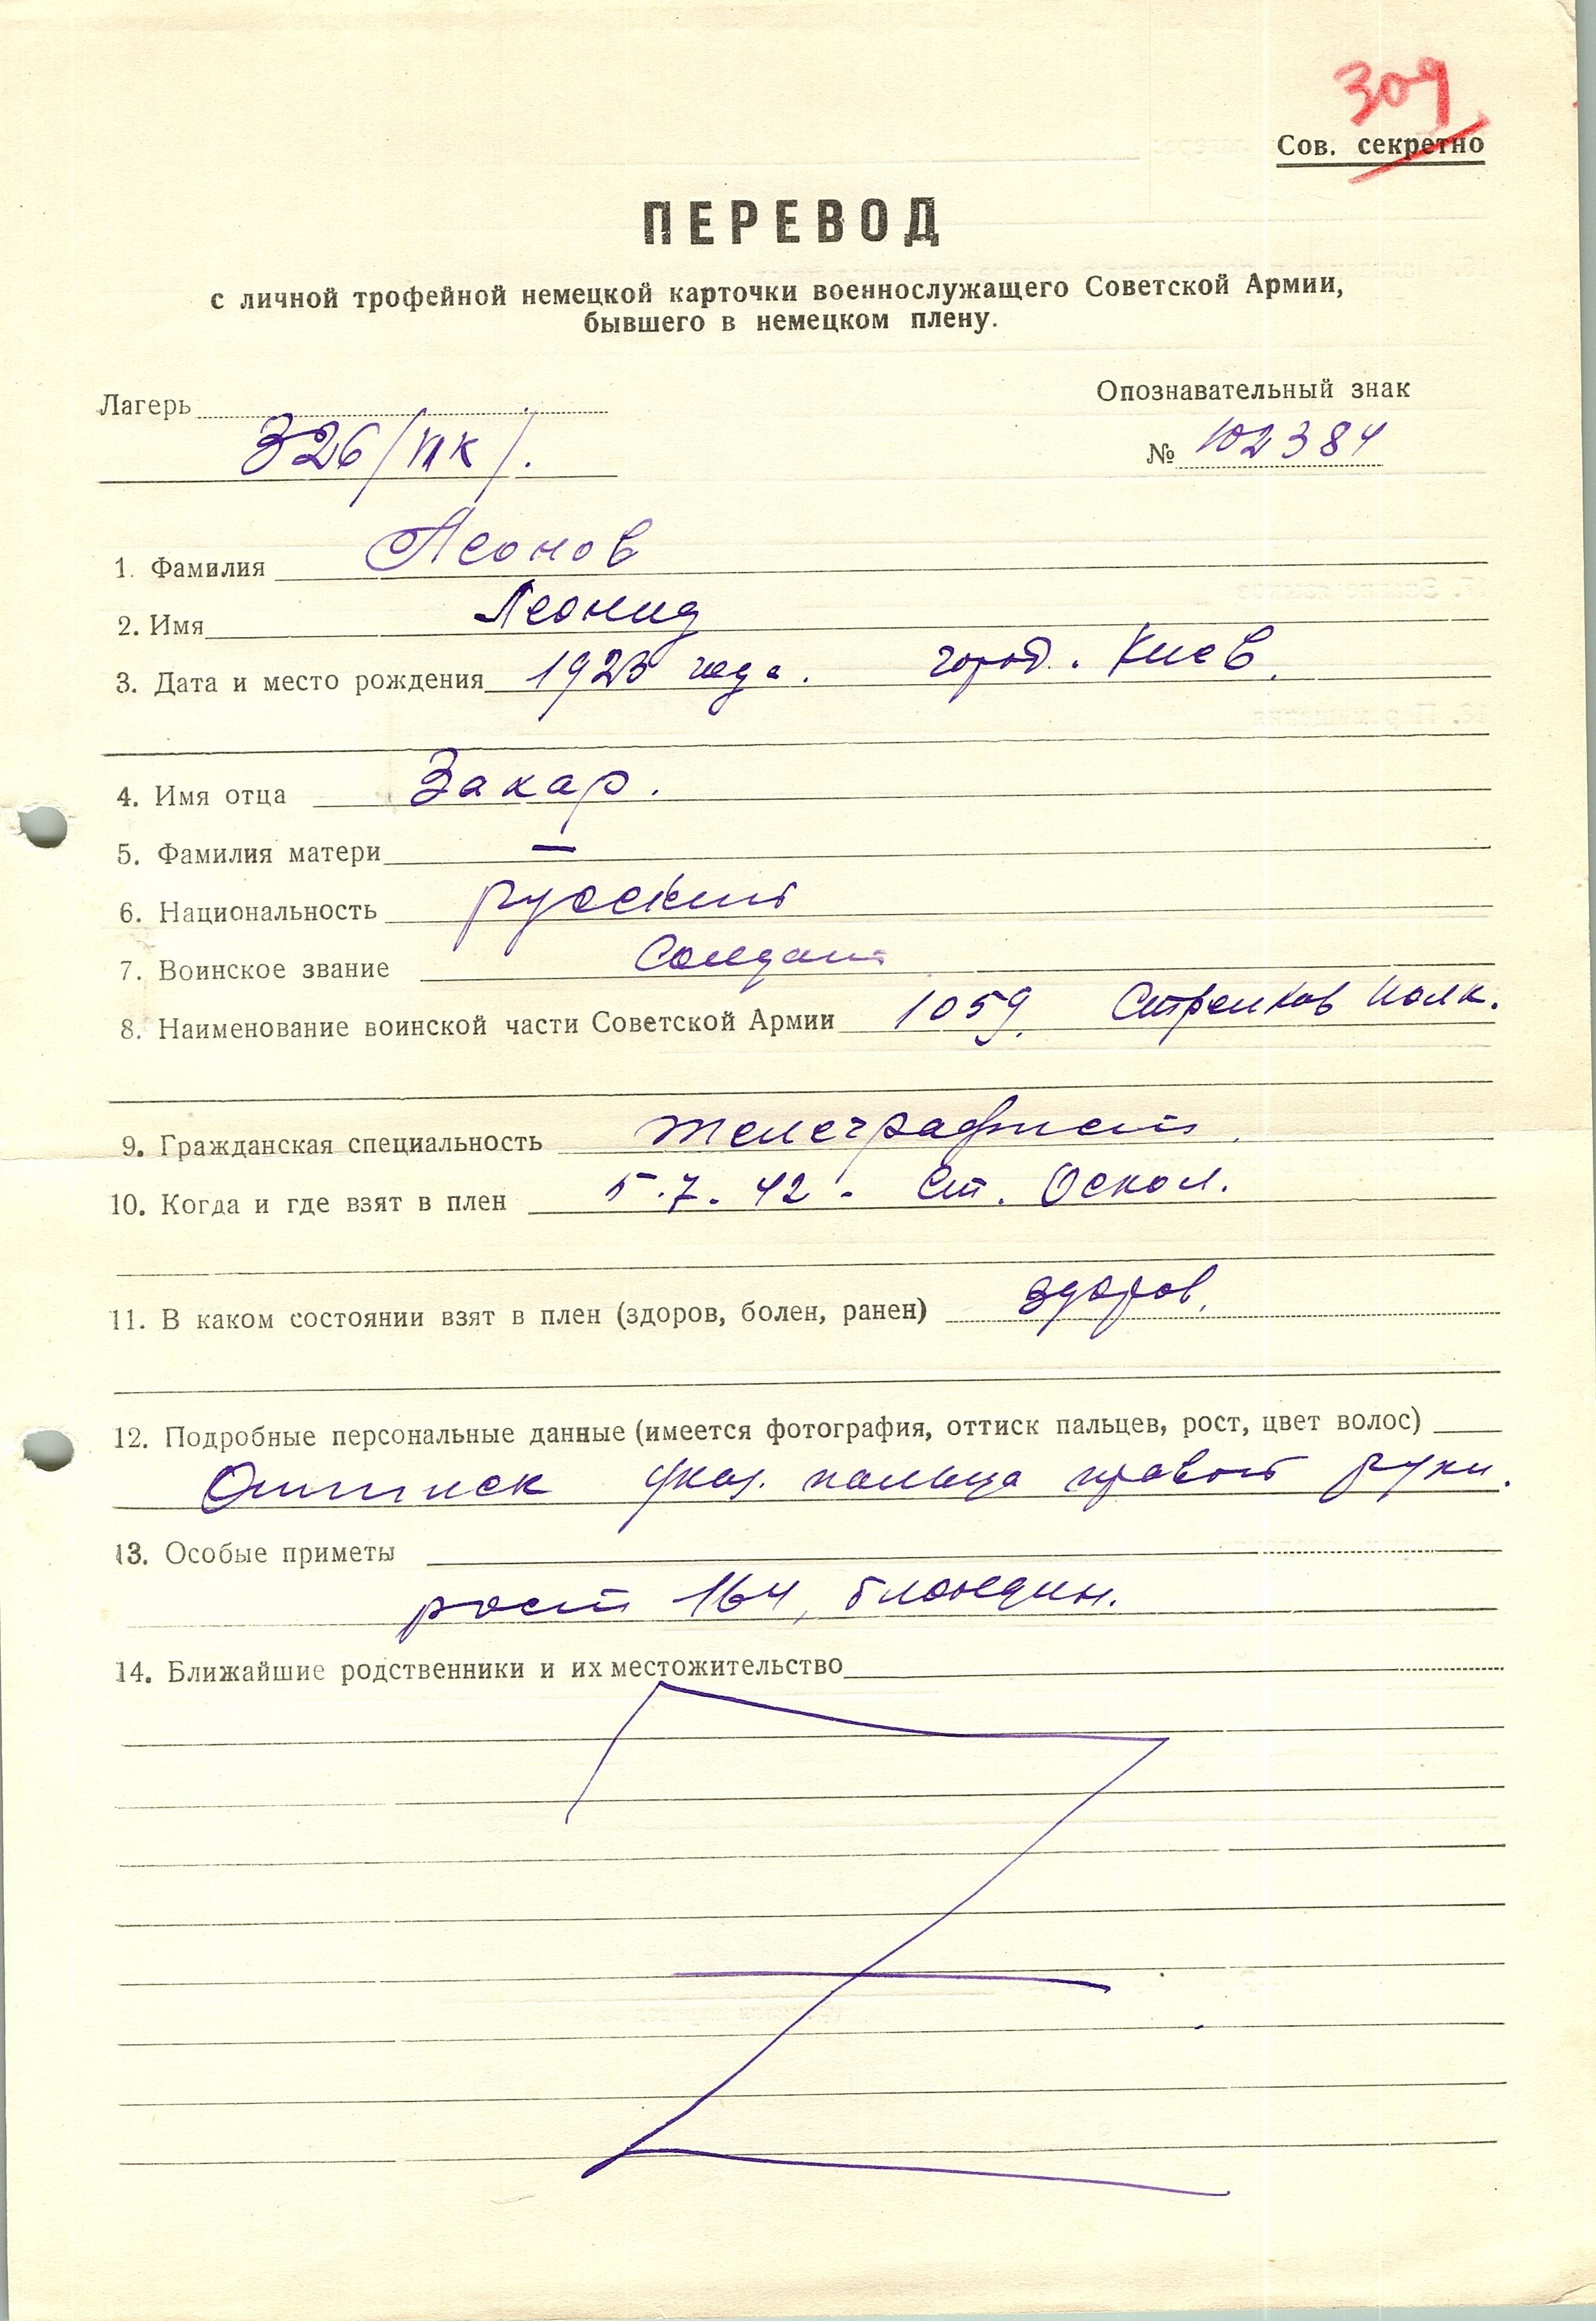 309
Сов. секретно
ПЕРЕВОД
с личной трофейной немецкой карточки военнослужащего Советской Армии,
бывшего в немецком плену.
Лагерь
Опознавательный знак
326/VIК/.
№ 102384
1. Фамилия Леонов
2. Имя Леонид
3. Дата и место рождения 1923 года. город. Киев.
4. Имя отца Захар.
5. Фамилия матери —
6. Национальность русский
7. Воинское звание Солдат
8. Наименование воинской части Советской Армии 1059. Стрелков полк.
9. Гражданская специальность телеграфист.
10. Когда и где взят в плен 5.7.42. Ст. Оскол.
11. В каком состоянии взят в плен (здоров, болен, ранен) здоров.
12. Подробные персональные данные (имеется фотография, оттиск пальцев, рост, цвет волос)
Оттиск указ. пальца правой руки.
13. Особые приметы
рост 164, блондин.
14. Ближайшие родственники и их местожительство